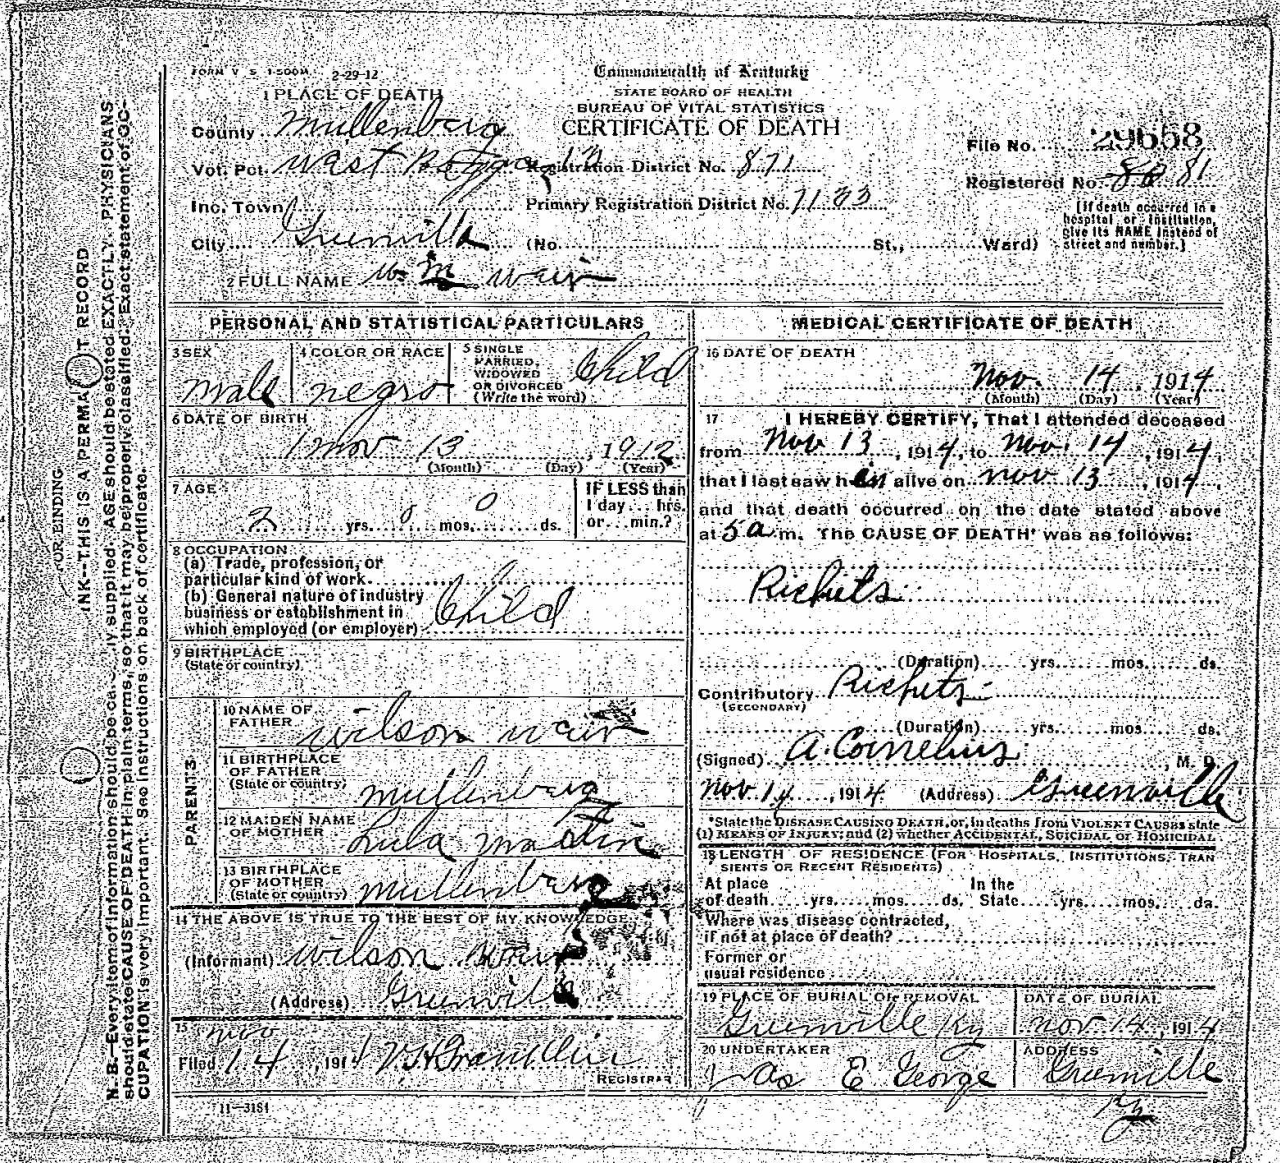 FORM V. S. 1-500M. 2-29-12
Commonwealth of Kentucky
STATE BOARD OF HEALTH
BUREAU OF VITAL STATISTICS
CERTIFICATE OF DEATH
1 PLACE OF DEATH
County Mullenberg
Vot. Pct. West
Registration District No. 871
Inc. Town
Primary Registration District No. 7133
City Greenville (No. St., Ward)
File No. 29658
Registered No. 81
(If death occurred in a hospital or institution, give its NAME instead of street and number.)
2 FULL NAME Wm Wair
PERSONAL AND STATISTICAL PARTICULARS
3 SEX
Male
4 COLOR OR RACE
negro
5 SINGLE MARRIED, WIDOWED OR DIVORCED (Write the word)
Child
6 DATE OF BIRTH
Nov 13, 1912
(Month) (Day) (Year)
7 AGE
2 yrs. 0 mos. 0 ds.
IF LESS than 1 day ... hrs. or ... min.?
8 OCCUPATION
(a) Trade, profession, or
particular kind of work
(b) General nature of industry
business or establishment in
which employed (or employer) Child
9 BIRTHPLACE
(State or country)
PARENTS
10 NAME OF FATHER
Wilson Wair
11 BIRTHPLACE OF FATHER (State or country)
Mullenberg
12 MAIDEN NAME OF MOTHER
Lula Martin
13 BIRTHPLACE OF MOTHER (State or country)
Mullenberg
14 THE ABOVE IS TRUE TO THE BEST OF MY KNOWLEDGE
(Informant) Wilson Wair
(Address) Greenville
15
Filed Nov 14, 1914
REGISTRAR
11-3184
MEDICAL CERTIFICATE OF DEATH
16 DATE OF DEATH
Nov. 14, 1914
(Month) (Day) (Year)
17 I HEREBY CERTIFY, That I attended deceased
from Nov 13, 1914, to Nov. 14, 1914,
that I last saw him alive on Nov 13, 1914,
and that death occurred on the date stated above
at 5 a m. The CAUSE OF DEATH* was as follows:
Rickets
(Duration) yrs. mos. ds.
Contributory Rickets
(SECONDARY)
(Duration) yrs. mos. ds.
(Signed) A. Cornelius, M. D.
Nov 14, 1914 (Address) Greenville
*State the DISEASE CAUSING DEATH, or, in deaths from VIOLENT CAUSES state
(1) MEANS OF INJURY; and (2) whether ACCIDENTAL, SUICIDAL or HOMICIDAL
18 LENGTH OF RESIDENCE (FOR HOSPITALS, INSTITUTIONS, TRAN
SIENTS OR RECENT RESIDENTS)
At place of death yrs. mos. ds. In the State yrs. mos. ds.
Where was disease contracted,
if not at place of death?
Former or
usual residence
19 PLACE OF BURIAL OR REMOVAL
Greenville Ky
DATE OF BURIAL
Nov. 14, 1914
20 UNDERTAKER
Jas E George
ADDRESS
Greenville
Ky
FOR BINDING
INK--THIS IS A PERMA T RECORD
N. B.--Every item of information should be ly supplied. AGE should be stated EXACTLY. PHYSICIANS
should state CAUSE OF DEATH in plain terms, so that it may be properly classified. Exact statement of OC-
CUPATION is very important. See instructions on back of certificate.